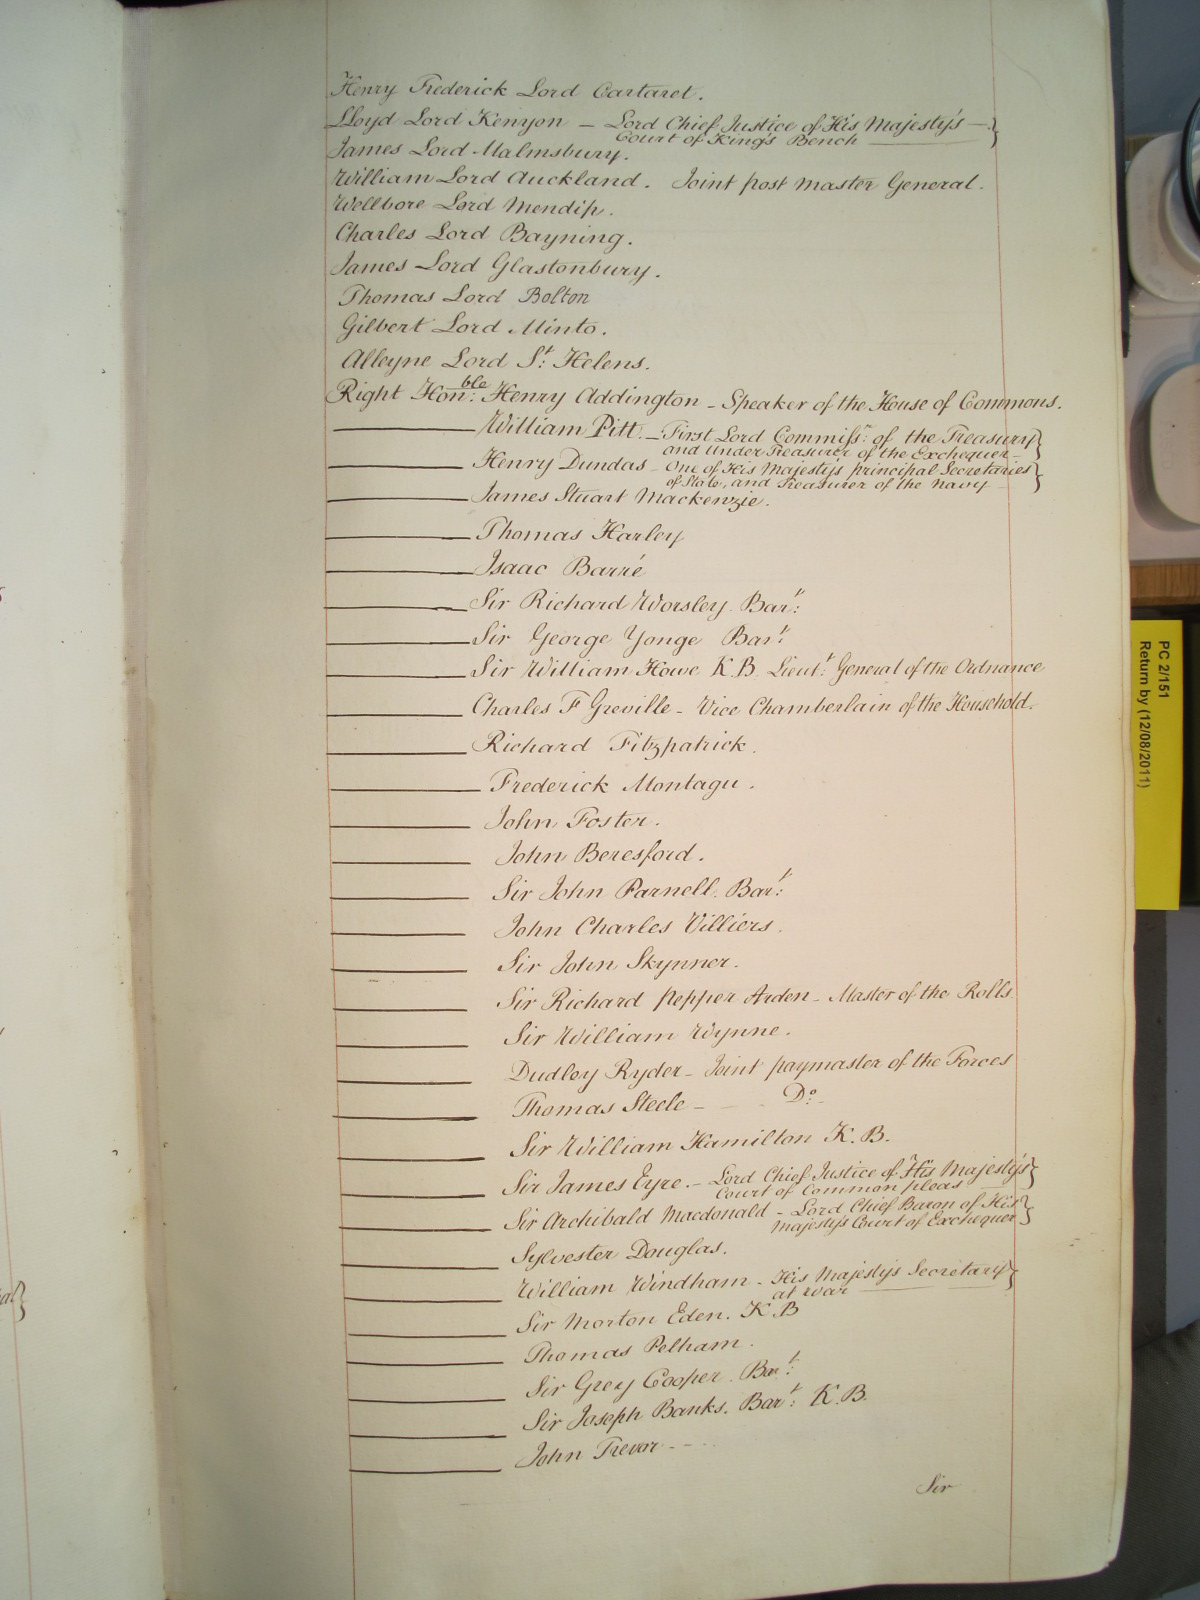 Henry Frederick Lord Cartaret.
Lloyd Lord Kenyon – Lord Chief Justice of His Majesty's –}
Court of King's Bench
James Lord Malmsbury.
William Lord Auckland. Joint post master General.
Wellbore Lord Mendip.
Charles Lord Bayning.
James Lord Glastonbury.
Thomas Lord Bolton
Gilbert Lord Minto.
Alleyne Lord St: Helens.
Right Hon:ble Henry Addington – Speaker of the House of Commons.
William Pitt. – First Lord Commissr: of the Treasury}
and Under Treasurer of the Exchequer –
Henry Dundas – One of His Majesty's principal Secretaries}
of State, and Treasurer of the Navy –
James Stuart Mackenzie.
Thomas Harley
Isaac Barré
Sir Richard Worsley Bart:
Sir George Yonge Bart:
Sir William Howe K.B. Lieut: General of the Ordnance
Charles F Greville – Vice Chamberlain of the Household.
Richard Fitzpatrick.
Frederick Montagu.
John Foster.
John Beresford.
Sir John Parnell. Bart:
John Charles Villiers.
Sir John Skynner.
Sir Richard Pepper Arden – Master of the Rolls
Sir William Wynne.
Dudley Ryder – Joint paymaster of the Forces
Thomas Steele – Do: –
Sir William Hamilton K.B.
Sir James Eyre. – Lord Chief Justice of His Majesty's}
Court of Common pleas
Sir Archibald Macdonald – Lord Chief Baron of His}
Majesty's Court of Exchequer
Sylvester Douglas.
William Windham – His Majesty's Secretary}
at War
Sir Morton Eden. K.B
Thomas Pelham.
Sir Grey Cooper. Bart:
Sir Joseph Banks. Bart: K.B.
John Trevor – – –
Sir
PC 2/151
Return by (12/08/2011)